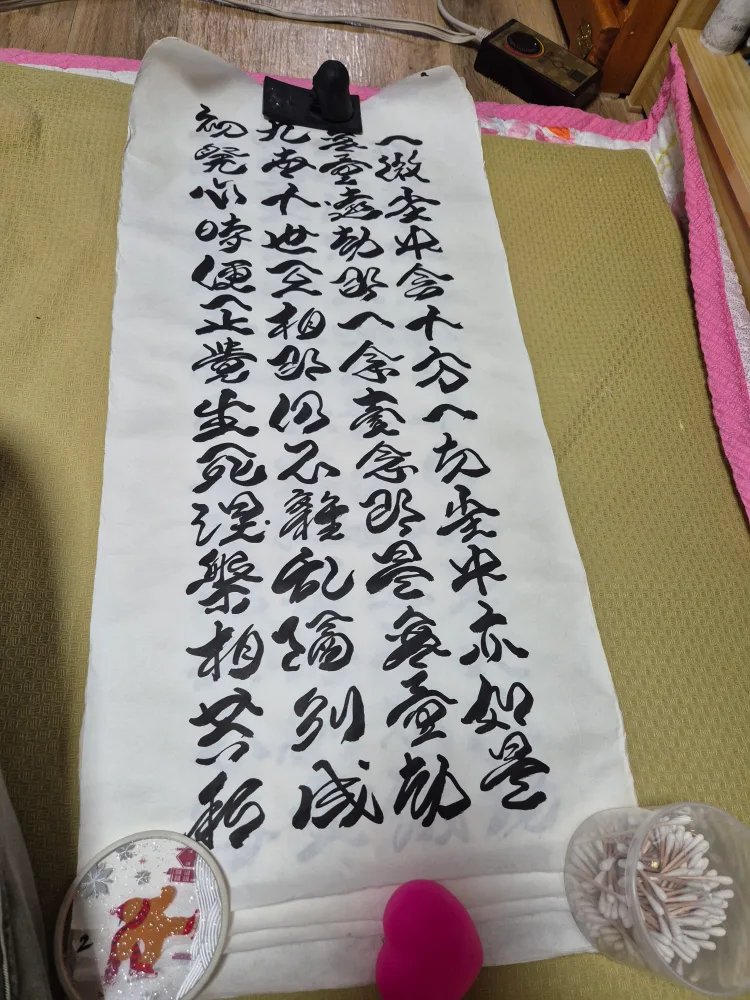 一微塵中含十方一切塵中亦如是
無量遠劫即一念壹念即是無量劫
九世十世互相即仍不雜乱隔別成
初発心時便正覺生死涅槃相共和
2